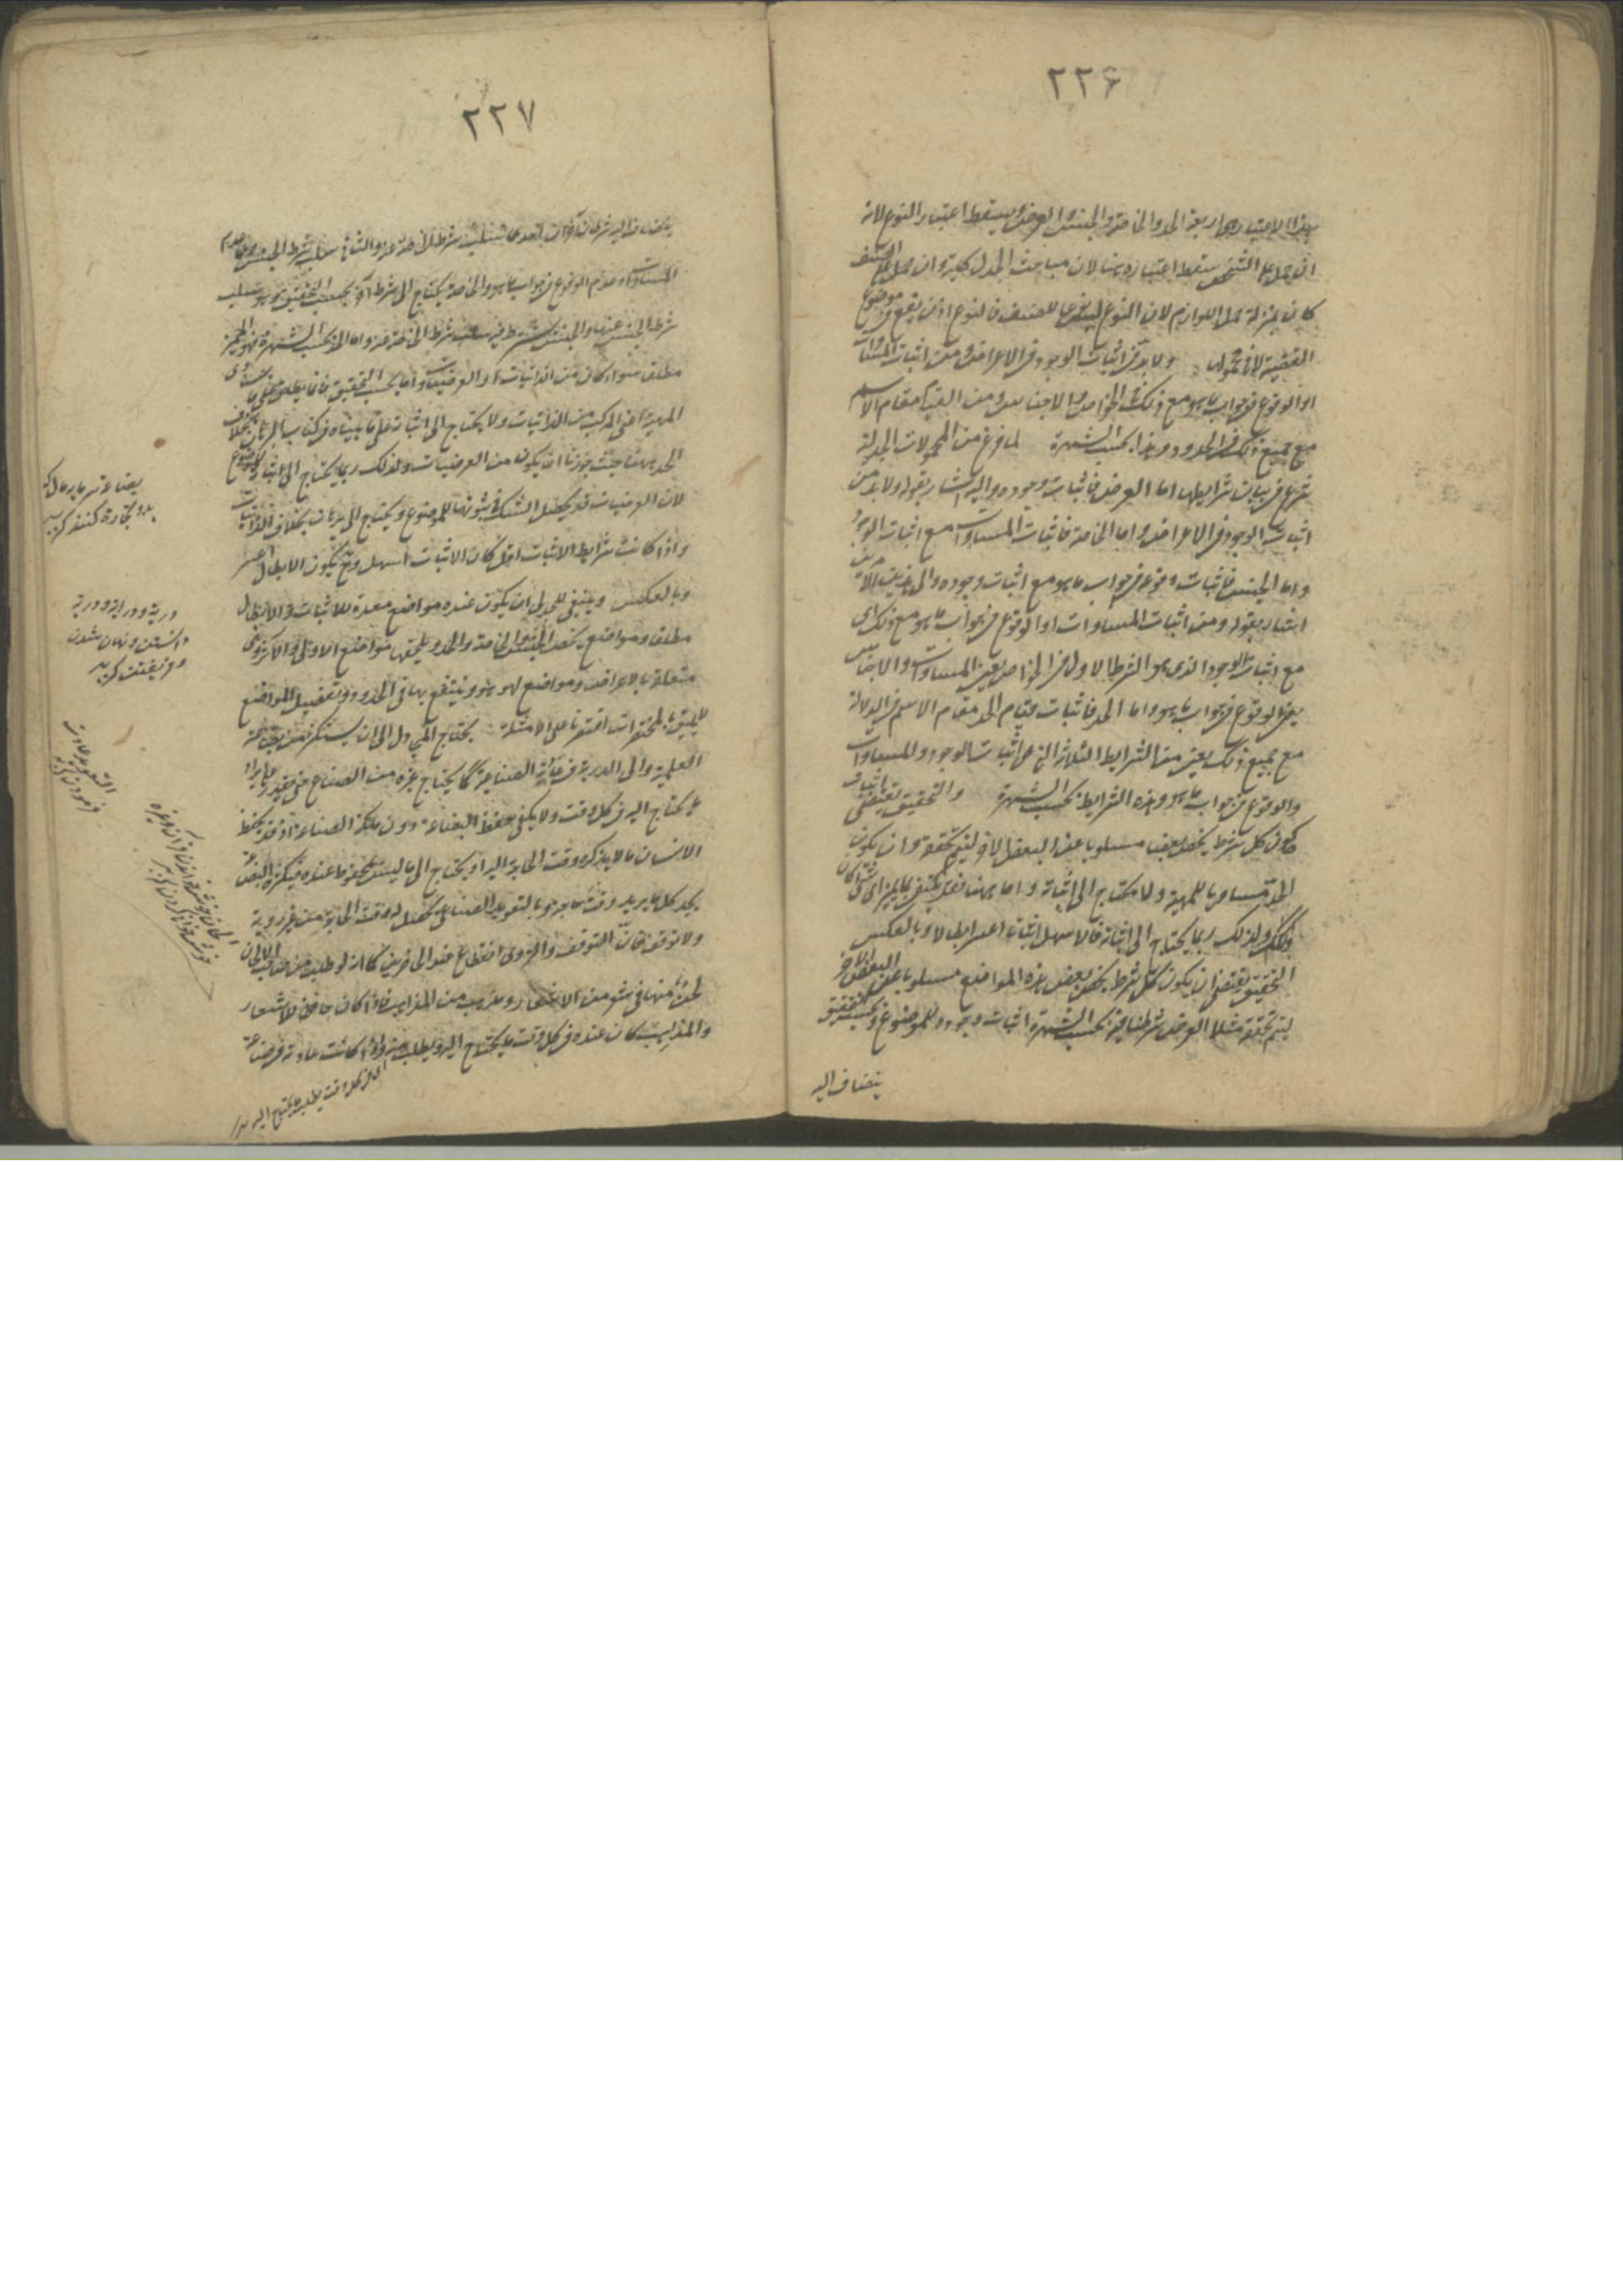 ٢٢۶
بهذا الاعتبار اربعة الحد والخاصة والجنس والعرض ويسقط اعتبار النوع لانه
ان حمل على الشخص سقط اعتباره هنا لان مباحث الجدل كلية وان حمل على الصنف
كان بمنزلة حمل اللوازم لان النوع ليس نوعا للصنف فالنوع اذن يقع في موضوع
القضية لا في محمولها ولا بد في اثبات الوجود في الاعراض ومن اثبات المساوات
او الوقوع في جواب ما هو مع ذلك في الخواص والاجناس ومن القيام مقام الاسم
مع جميع ذلك في الحدود وهذا بحسب الشهرة لما فرغ من المحمولات الجدلية
شرع في بيان شرايطها اما العرض فاثبات وجوده واليه اشار بقوله ولا بد من
اثبات الوجود في الاعراض واما الخاصة فاثبات المساوات مع اثبات الوجود
واما الجنس فاثبات وقوعه في جواب ما هو مع اثبات وجوده والى هذين الامرين
اشار بقوله ومن اثبات المساوات او الوقوع في جواب ما هو مع ذلك اى
مع اثبات الوجود الذى هو الشرط الاول في الخواص يعنى المساوات والاجناس
يعنى الوقوع في جواب ما هو واما الحد فاثبات قيام الحد مقام الاسم في الدلالة
مع جميع ذلك يعنى من الشرايط الثلاثة التى هى اثبات الوجود والمساوات
والوقوع في جواب ما هو وهذه الشرايط بحسب الشهرة والتحقيق يقتضى
كون كل شرط يخص بعضا مسلوبا عن البعض الاخر ليتم تحققه وان يكون
الحد مساويا للمهية ولا محتاج الى اثباته واما ههنا فقد يكتفى بما يميز اى شئ كان
وذلك ولذلك ربما يحتاج الى اثباته فالاسهل اثباتا اعسر ابطالا وبالعكس
التحقيق يقتضى ان يكون كل شرط يخص بعض هذه المواضع مسلوبا عن البعض الاخر
ليتم تحققه مثلا العرض شرطنا فيه بحسب الشهرة اثبات وجوده للموضوع وبحسب التحقيق
ينضاف اليه
٢٢٧
ينضاف اليه شرطان آخران احدهما سلب شرط الخاصة عنه والثانى سلب شرط الجنس وهما عدم
المساوات وعدم الوقوع في جواب ما هو والخاصة يحتاج الى شرط آخر بحسب التحقيق هو سلب
شرط الجنس عنها والجنس يشترط فيه سلب شرط الخاصة عنه واما الحد بحسب الشهرة فهو المميز
مطلقا سواء كان من الذاتيات او العرضيات واما بحسب التحقيق فانما يطلق على ما يساوى
المهية اعنى المركب من الذاتيات ولا يحتاج الى اثباته على ما بيناه في كتاب البرهان بخلاف
الحد ههنا حيث جوزنا ان يكون من العرضيات ولذلك ربما يحتاج الى اثباته للموضوع
لان العرضيات قد يحصل الشك في ثبوتها للموضوع ويحتاج الى برهان بخلاف الذاتيات
واذا كانت شرايط الاثبات اقل كان الاثبات اسهل وح يكون الابطال اعسر
وبالعكس وينبغى للجدلى ان يكون عنده مواضع معدة للاثبات والابطال
مطلقا ومواضع يخص الجنس والخاصة والحد ويلحقها مواضع الاولى والاكثر وهى
متعلقة بالاعراض ومواضع الهو هو وينتفع بها في الحدود وتفصيل المواضع
لا يليق بالمختصرات اقتصرنا على الامثلة يحتاج المجادل الى ان يستكثر من بضاعة
العلمية والى الدربة في الصناعة كما يحتاج غيره من الصناع حتى يقدر على ايراد
ما يحتاج اليه في كل وقت ولا يكفى حفظ البضاعة دون ملكة الصناعة اذ قد يحفظ
الانسان ما لا يذكره وقت الحاجة اليه او يحتاج الى ما ليس محفوظا عنده فبكثرة البضاعة
يجد كل ما يريد وقت حاجته وبالتعويد الصناعى يحصل له وقت الحاجة من غير روية
ولا توقف فان التوقف والروى انقطاع عند الحاضرين كما انه لو طلب من صاحب الالحان
لحن منها في شعر من الاشعار ومذهب من المذاهب فاذا كان حافظا للاشعار
والمذاهب كان عنده في كل وقت ما يحتاج اليه ويطلب منه واذا كانت عادته وصناعته
في كل وقت يطلب ما يحتاج اليه
بضاعة سرمايه مال كه
بدو تجارة كنند كزيده
درية ودراية ودربة
دانستن و نهان شدن
و فريفتن كزيده
التعويد عادت
فرمودن كزيده